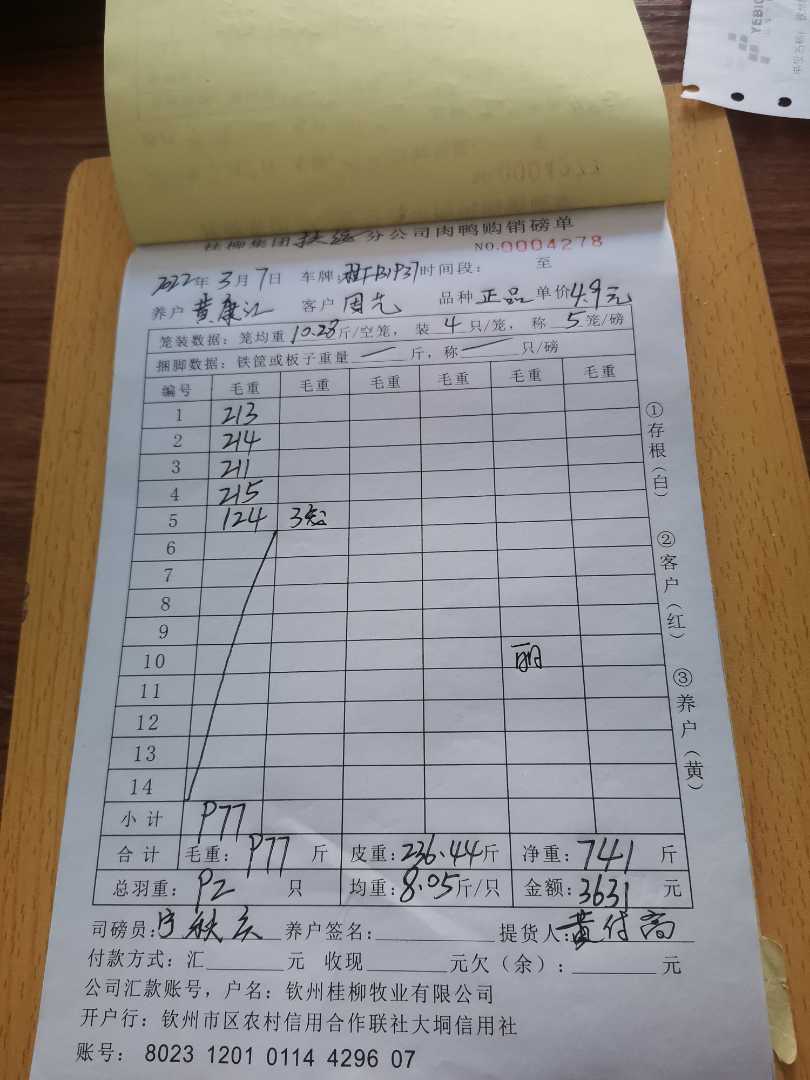 桂柳集团扶绥分公司肉鸭购销磅单
NO.0004278
2022年3月7日 车牌: 时间段: 至
养户 黄康汇 客户 周先 品种 正品 单价4.9元
笼装数据: 笼均重 10.28斤/空笼, 装 4 只/笼, 称 5 笼/磅
捆脚数据: 铁筐或板子重量 — 斤, 称 — 只/磅
编号 毛重 毛重 毛重 毛重 毛重 毛重
1 213
2 214
3 211
4 215
5 124
6
7
8
9
10
11
12
13
14
小计 977
合计 毛重: 977 斤 皮重: 236.44斤 净重: 741 斤
总羽重: 92 只 均重: 8.05斤/只 金额: 3631 元
司磅员: 养户签名: 提货人: 黄付高
付款方式: 汇 元 收现 元欠(余): 元
公司汇款账号, 户名: 钦州桂柳牧业有限公司
开户行: 钦州市区农村信用合作联社大垌信用社
账号: 8023 1201 0114 4296 07
①存根(白)
②客户(红)
③养户(黄)